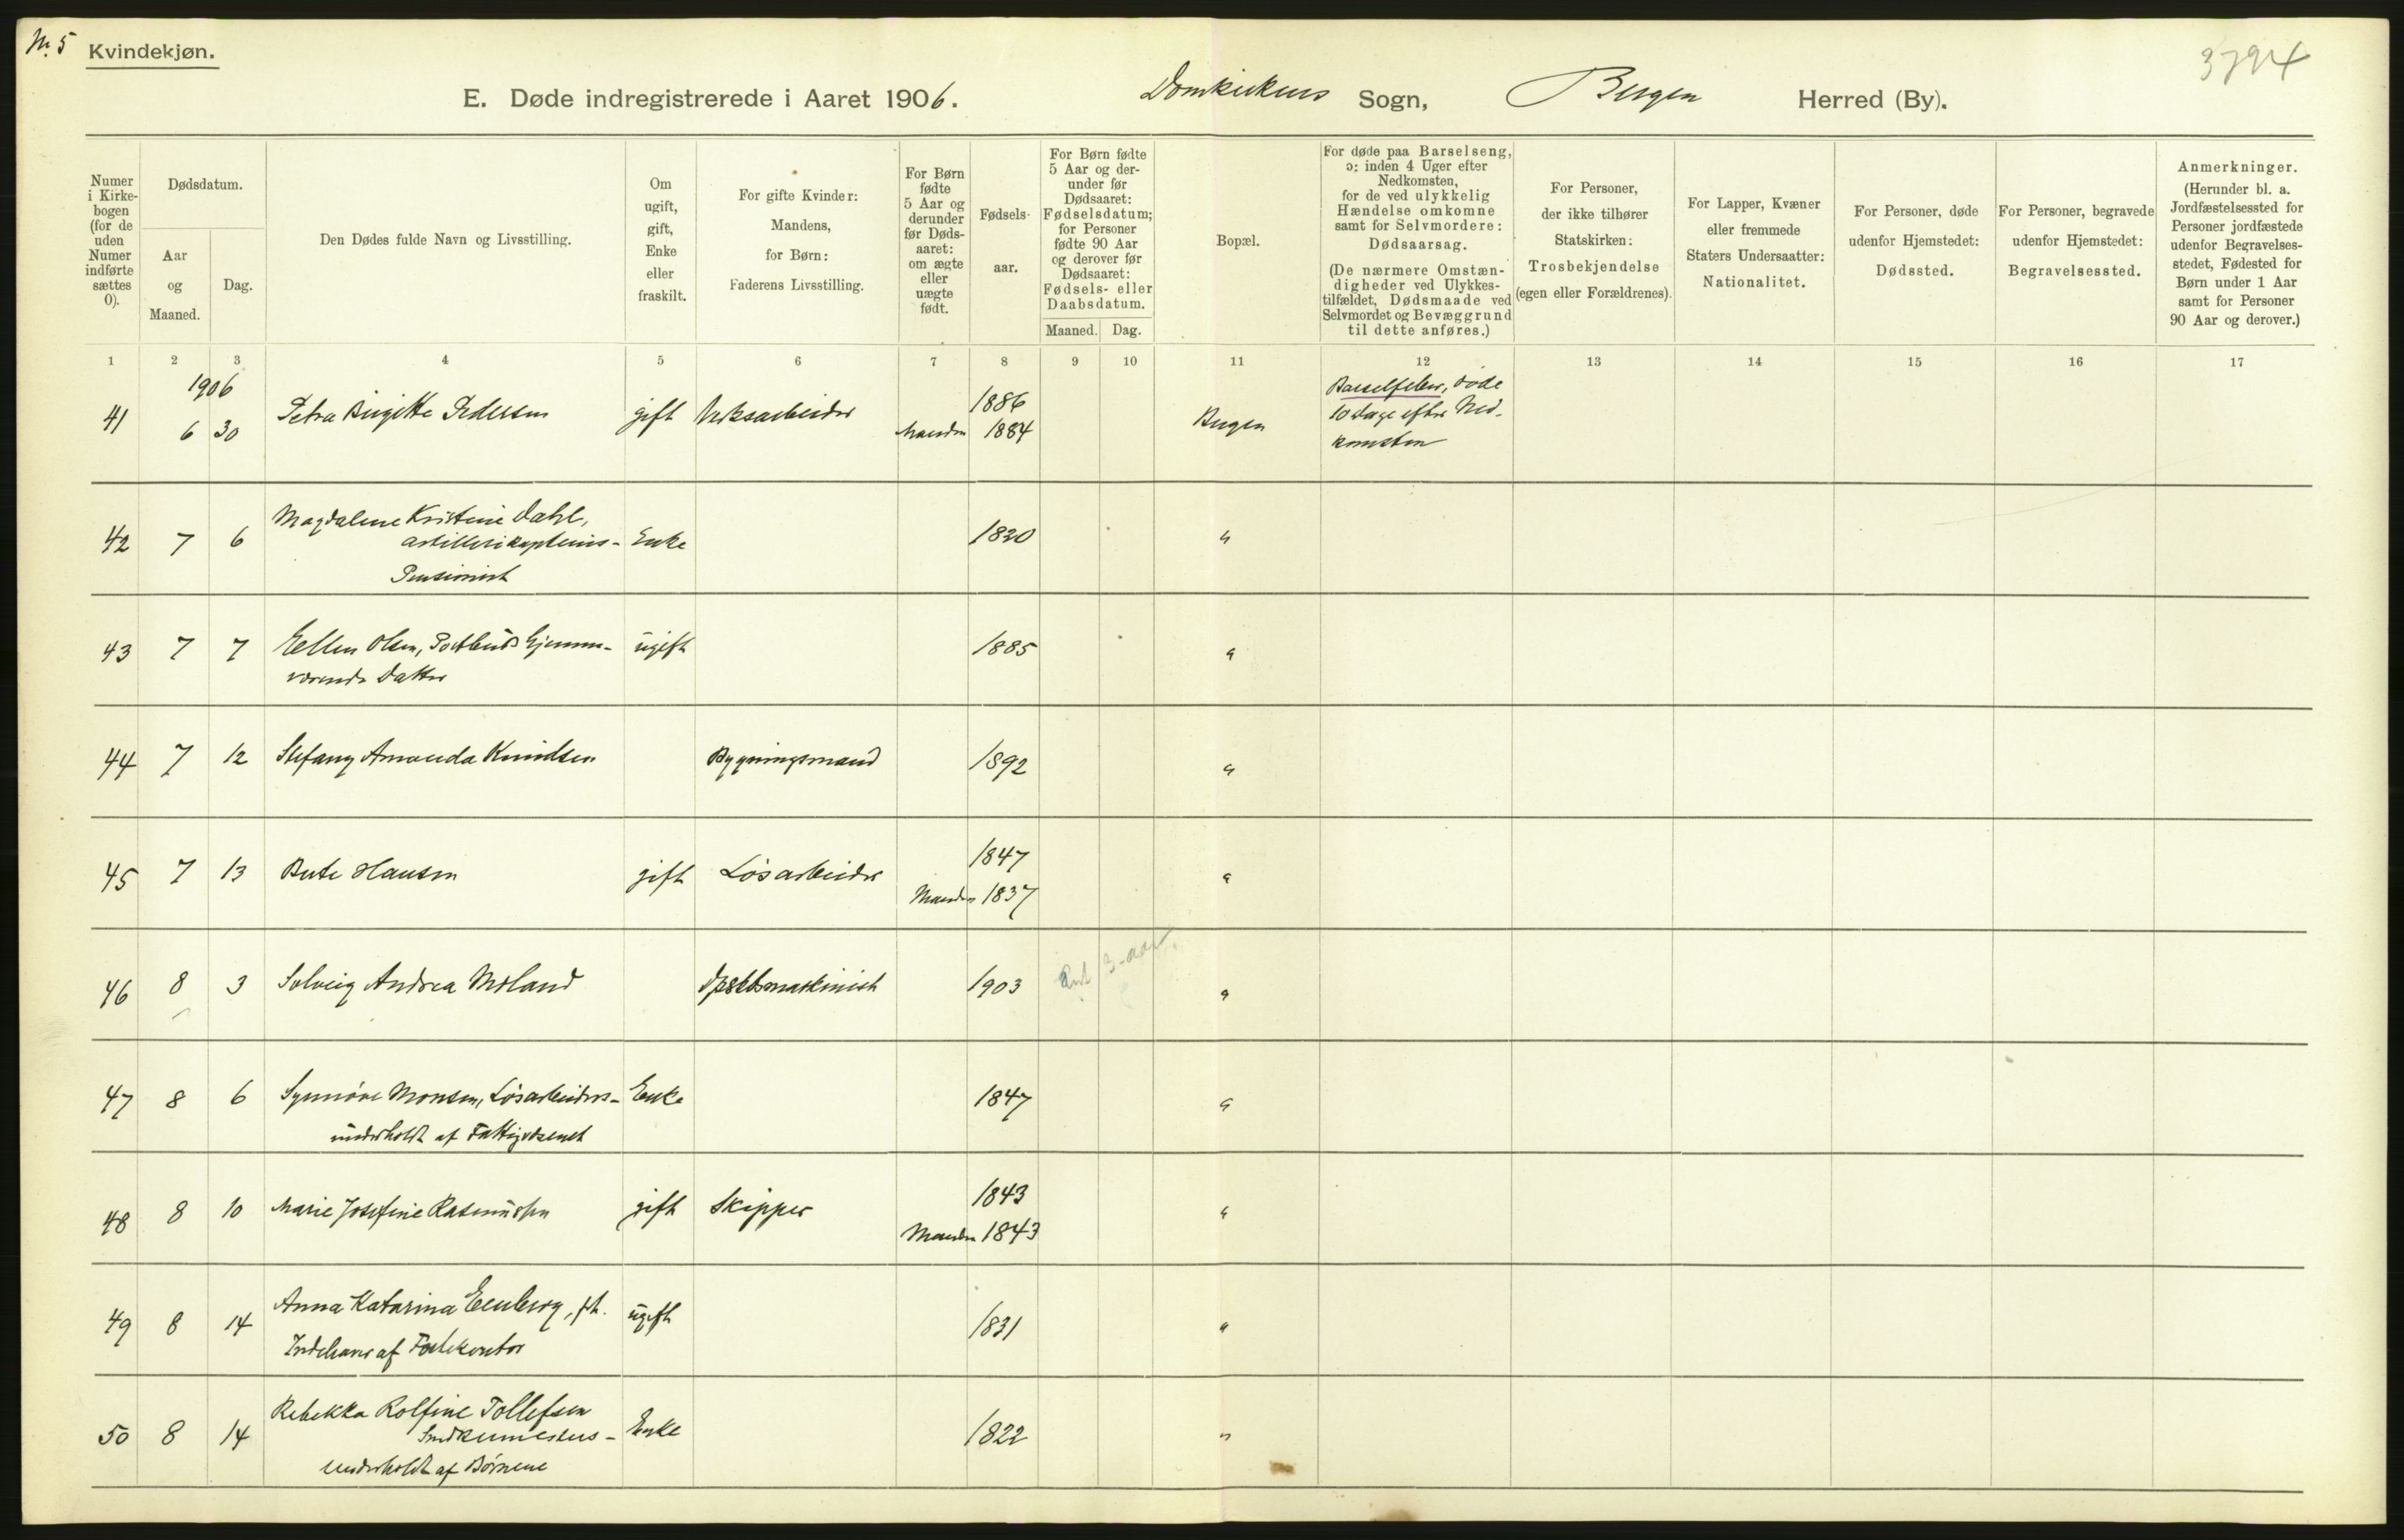 Nr. 5
Kvindekjøn.
3794
E. Døde indregistrerede i Aaret 1906. Domkirkens Sogn, Bergen Herred (By).
Numer i Kirkebogen (for de uden Numer indførte sættes 0).
Dødsdatum.
Aar og Maaned.
Dag.
Den Dødes fulde Navn og Livsstilling.
Om ugift, gift, Enke eller fraskilt.
For gifte Kvinder: Mandens, for Børn: Faderens Livsstilling.
For Børn fødte 5 Aar og derunder før Dødsaaret: om ægte eller uægte født.
Fødselsaar.
For Børn fødte 5 Aar og derunder før Dødsaaret: Fødselsdatum; for Personer fødte 90 Aar og derover før Dødsaaret: Fødsels- eller Daabsdatum.
Maaned. Dag.
Bopæl.
For døde paa Barselseng, ɔ: inden 4 Uger efter Nedkomsten, for de ved ulykkelig Hændelse omkomne samt for Selvmordere: Dødsaarsag.
(De nærmere Omstændigheder ved Ulykkestilfældet, Dødsmaade ved Selvmordet og Bevæggrund til dette anføres.)
For Personer, der ikke tilhører Statskirken: Trosbekjendelse (egen eller Forældrenes).
For Lapper, Kvæner eller fremmede Staters Undersaatter: Nationalitet.
For Personer, døde udenfor Hjemstedet: Dødssted.
For Personer, begravede udenfor Hjemstedet: Begravelsessted.
Anmerkninger.
(Herunder bl. a. Jordfæstelsessted for Personer jordfæstede udenfor Begravelsesstedet, Fødested for Børn under 1 Aar samt for Personer 90 Aar og derover.)
1 2 3 4 5 6 7 8 9 10 11 12 13 14 15 16 17
1906
41 6 30 Petra Birgitte Pedersen gift Verksarbeider 1886 Bergen Barselfeber, døde
Manden 1884 10 dage efter Ned-
komsten
42 7 6 Magdalene Kristine Dahl, Enke 1820 "
artillerikapteins-
Pensionist
43 7 7 Ellen Olsen, Postbuds hjemme- ugift 1885 "
værende Datter
44 7 12 Stefany Amanda Knudsen Bygningsmand 1892 "
45 7 13 Berte Hansen gift Løsarbeider 1847 "
Manden 1837
46 8 3 Solveig Andrea Moland 1903 3-aar. "
47 8 6 Synnøve Monsen, Løsarbeiders- Enke 1847 "
underholdt af Fattigvæsenet
48 8 10 Marie Josefine Rasmussen gift Skipper 1843 "
Manden 1843
49 8 14 Anna Katarina ugift 1831 "
Indehaver af Festekontor
50 8 14 Rebekka Rolfine Tollefsen Enke 1822 "
Snedkermesters-
underholdt af Børnene